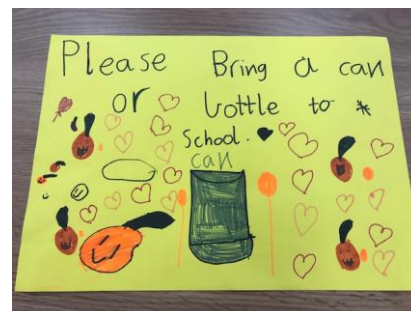 Please Bring a can
or bottle to *
school.
can